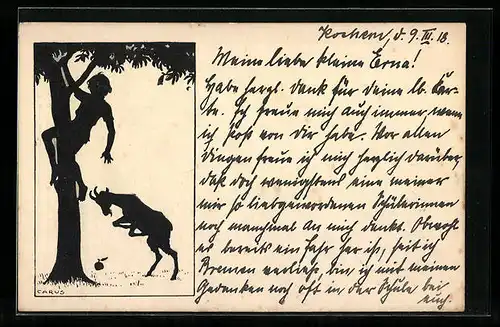 Kochem, d. 9. III. 18.
Meine liebe kleine Erna!
Habe herzl. Dank für deine lb. Kar-
te. Ich freue mich auch immer, wenn
ich Post von Dir habe. Vor allen
Dingen freue ich mich herzlich darüber
daß doch wenigstens eine meiner
mir so liebgewordenen Schülerinnen
noch manchmal an mich denkt. Obwohl
es bereits ein Jahr her ist, seit ich
Bremen verließ, bin ich mit meinen
Gedanken noch oft in der Schule bei
euch.
CARUS